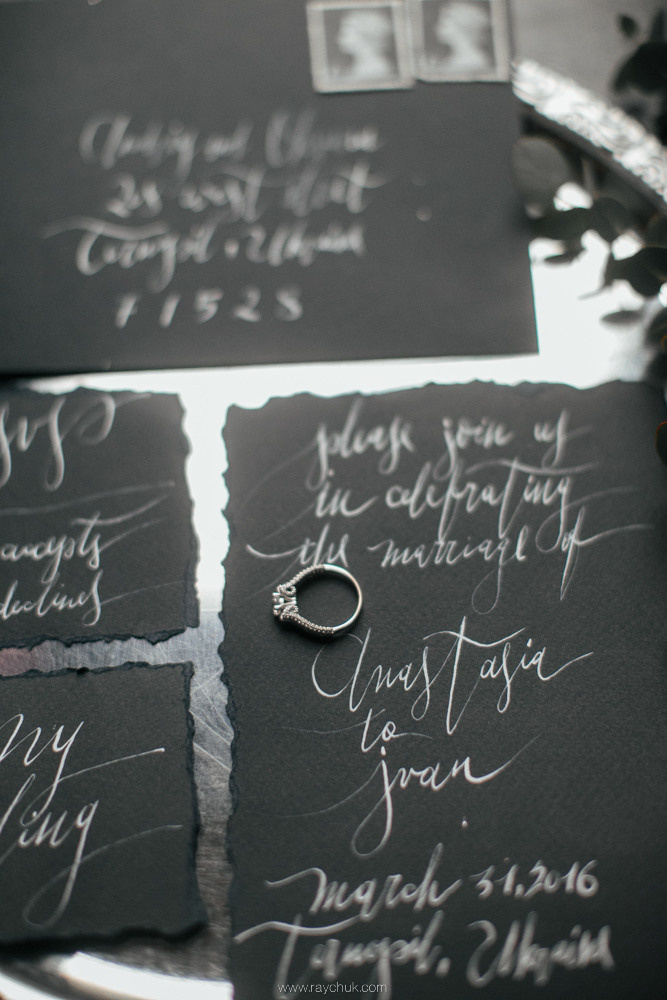 28 west
Ternopil, Ukraine
71528
accepts
declines
ny
ling
please join us
in celebrating
the marriage of
Anastasia
to
jvan
march 31, 2016
Ternopil, Ukraine
www.raychuk.com